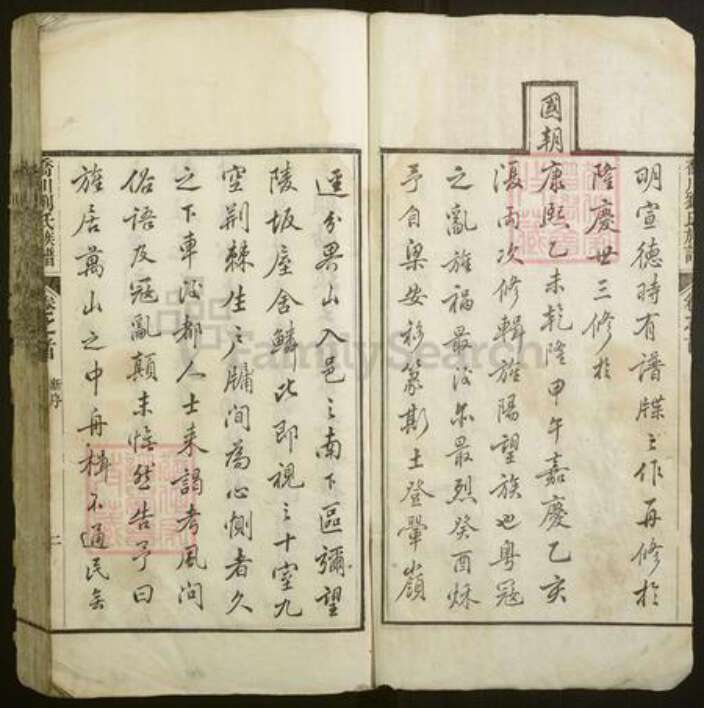 明宣德時有譜牒之作再修於
隆慶世三修於
國朝
康熙乙未乾隆甲午嘉慶乙亥
復兩次修輯旌陽望族也粵寇
之亂旌禍最後亦最烈癸酉秋
予自梁安移篆斯土登翚嶺
逕分界山入邑之南下區彌望
陵坂屋舍鱗比即視之十室九
空荊棘生戶牖間為心惻者久
之下車後都人士來謁考風問
俗語及寇亂顛末愴然告予曰
旌居萬山之中舟楫不通民矣
喬川劉氏族譜
卷之首
二
FamilySearch